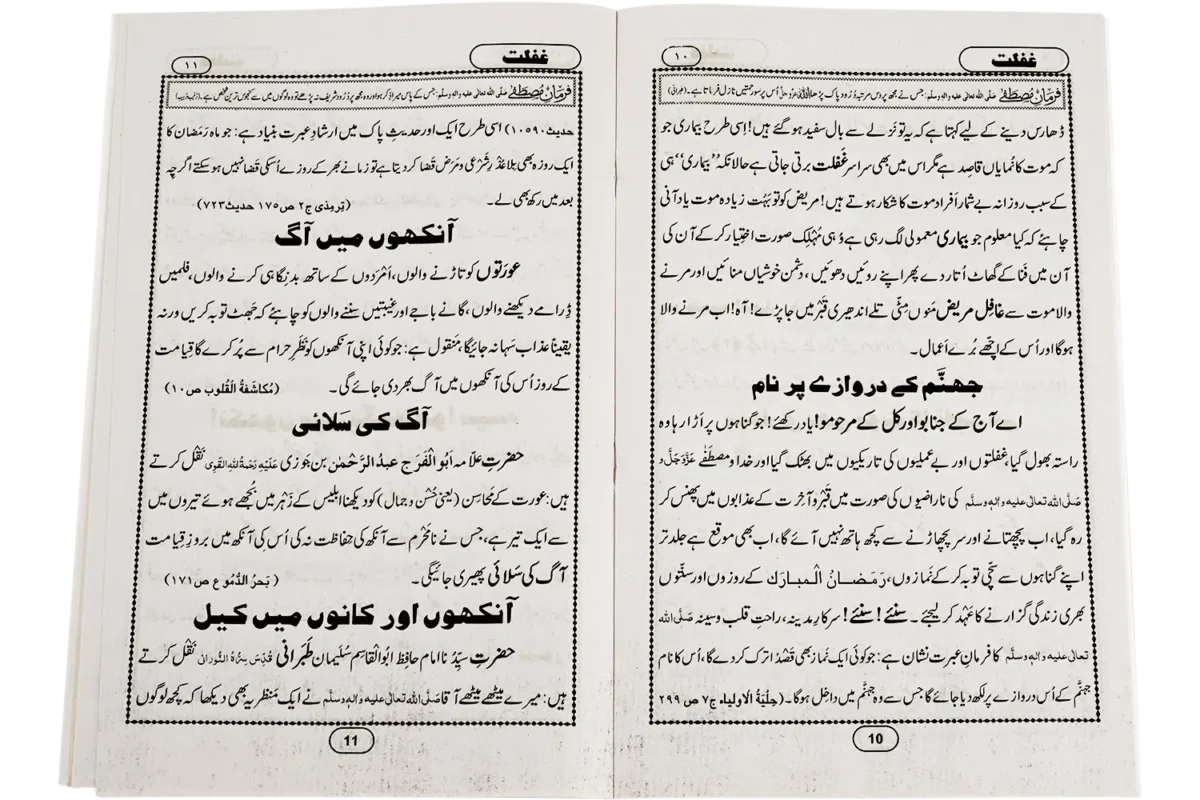 غفلت
۱۰
فرمانِ مصطفٰے صلی اللہ تعالٰی علیہ والہ وسلم: جس نے مجھ پر دس مرتبہ دُرُود پاک پڑھا اللہ عزوجل اُس پر سو رحمتیں نازل فرماتا ہے۔ (طبرانی)
ڈھارس دینے کے لیے کہتا ہے کہ یہ تو نزلے سے بال سفید ہو گئے ہیں! اِسی طرح بیماری جو
کہ موت کا نمایاں قاصد ہے مگر اس میں بھی سراسر غفلت برتی جاتی ہے حالانکہ ’’بیماری‘‘ ہی
کے سبب روزانہ بے شمار اَفراد موت کا شکار ہوتے ہیں! مریض کو تو بَہُت زیادہ موت یاد آنی
چاہئے کہ کیا معلوم جو بیماری معمولی لگ رہی ہے وُہی مُہْلِک صورت اختِیار کر کے آن کی
آن میں فَنا کے گھاٹ اُتار دے پھر اپنے روئیں دھوئیں، دشمن خوشیاں منائیں اور مرنے
والا موت سے غافِل مریض مَنوں مِٹّی تلے اندھیری قَبْر میں جا پڑے! آہ! اب مرنے والا
ہوگا اور اُس کے اچّھے بُرے اَعمال۔
جھنّم کے دروازے پر نام
اے آج کے جنابو اور کل کے مرحومو! یاد رکھئے! جو گناہوں پر اَڑا رہا وہ
راستہ بھول گیا، غفلتوں اور بے عملیوں کی تاریکیوں میں بھٹک گیا اور خدا و مصطَفٰے عَزَّوَجَلَّ و
صَلَّی اللہ تعالٰی علیہ والہٖ وسلَّم کی ناراضیوں کی صورت میں قَبْر و آخِرت کے عذابوں میں پھنس کر
رہ گیا، اب پچھتانے اور سر پچھاڑنے سے کچھ ہاتھ نہیں آئے گا، اب بھی موقع ہے جلد تر
اپنے گناہوں سے سچّی توبہ کر کے نَمازوں، رَمَضانُ الْمبارَک کے روزوں اور سنّتوں
بھری زندگی گزارنے کا عَہْد کر لیجئے۔ سنئے! سنئے! سرکارِ مدینہ، راحتِ قلب وسینہ صَلَّی اللہ
تعالٰی علیہ والہٖ وسلَّم کا فرمانِ عبرت نشان ہے: جو کوئی ایک نَماز بھی قَصْدًا ترک کر دے گا، اُس کا نام
جہنَّم کے اُس دروازے پر لکھ دیا جائے گا جس سے وہ جہنَّم میں داخِل ہوگا۔ (حِلْیَۃُ الاولیاء ج۷ ص ۲۹۹
10
غفلت
۱۱
فرمانِ مصطفٰے صلی اللہ تعالٰی علیہ والہ وسلم: جس کے پاس میرا ذکر ہوا اور وہ مجھ پر دُرُود شریف نہ پڑھے تو وہ لوگوں میں سے کنجوس ترین شخص ہے۔
حدیث۱۰۵۹۰) اسی طرح ایک اور حدیثِ پاک میں ارشادِ عبرت بنیاد ہے: جو ماہِ رَمَضان کا
ایک روزہ بھی بِلا عُذْرِ شَرْعی و مَرَض قضا کر دیتا ہے تو زمانے بھر کے روزے اُسکی قضا نہیں ہو سکتے اگرچِہ
بعد میں رکھ بھی لے۔ (تِرمِذی ج۲ ص۱۷۵ حدیث۷۲۳)
آنکھوں میں آگ
عورَتوں کو تاڑنے والوں، اَمْرَدوں کے ساتھ بدنگاہی کرنے والوں، فلمیں
ڈِرامے دیکھنے والوں، گانے باجے اور غیبتیں سننے والوں کو چاہئے کہ جَھٹ توبہ کریں ورنہ
یقیناً عذاب سَہا نہ جائیگا، مَنقول ہے: جو کوئی اپنی آنکھوں کو نظرِ حرام سے پُر کرے گا قِیامت
کے روز اُس کی آنکھوں میں آگ بھر دی جائے گی۔ (مُکاشَفۃُ الْقُلوب ص۱۰)
آگ کی سَلائی
حضرتِ علّامہ اَبُو الْفَرَج عبدُ الرَّحْمٰن بن جَوزی عَلَیْہِ رَحْمَۃُ اللّٰہِ الْقَوِی نَقْل کرتے
ہیں: عورت کے مَحاسِن (یعنی حُسْن و جمال) کو دیکھنا ابلیس کے زَہْر میں بُجھے ہوئے تیروں میں
سے ایک تیر ہے، جس نے نامَحْرَم سے آنکھ کی حفاظت نہ کی اُس کی آنکھ میں بروزِ قِیامت
آگ کی سَلائی پھیری جائیگی۔ (بَحرُ الدُّمُوع ص۱۷۱)
آنکھوں اور کانوں میں کیل
حضرتِ سیِّدُنا امام حافِظ ابوالقاسِم سُلَیمان طَبَرانی قُدِّسَ سِرُّہُ النُّورانی نَقْل کرتے
ہیں: میرے میٹھے میٹھے آقا صَلَّی اللہ تعالٰی علیہ والہٖ وسلَّم نے ایک مَنظر یہ بھی دیکھا کہ کچھ لوگوں
11